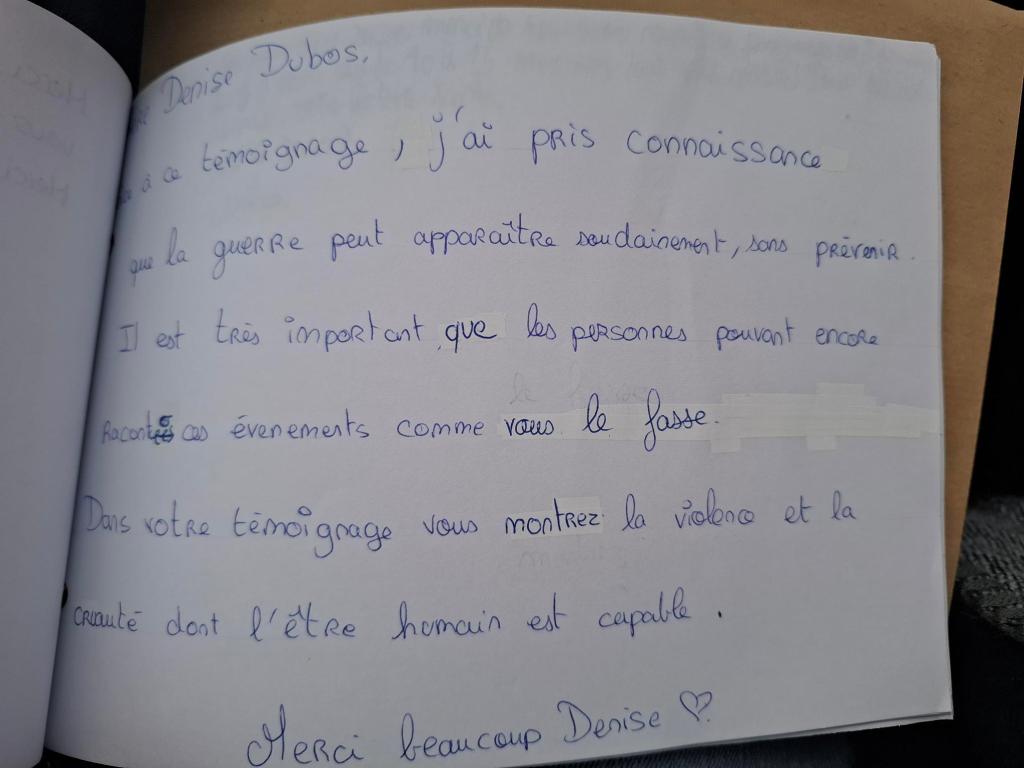 Denise Dubos,
à ce témoignage, j'ai pris connaissance
que la guerre peut apparaître soudainement, sans prévenir.
Il est très important que les personnes pouvant encore
raconté ces évenements comme vous le fasse.
Dans votre témoignage vous montrez la violence et la
cruauté dont l'être humain est capable.
Merci beaucoup Denise ♡